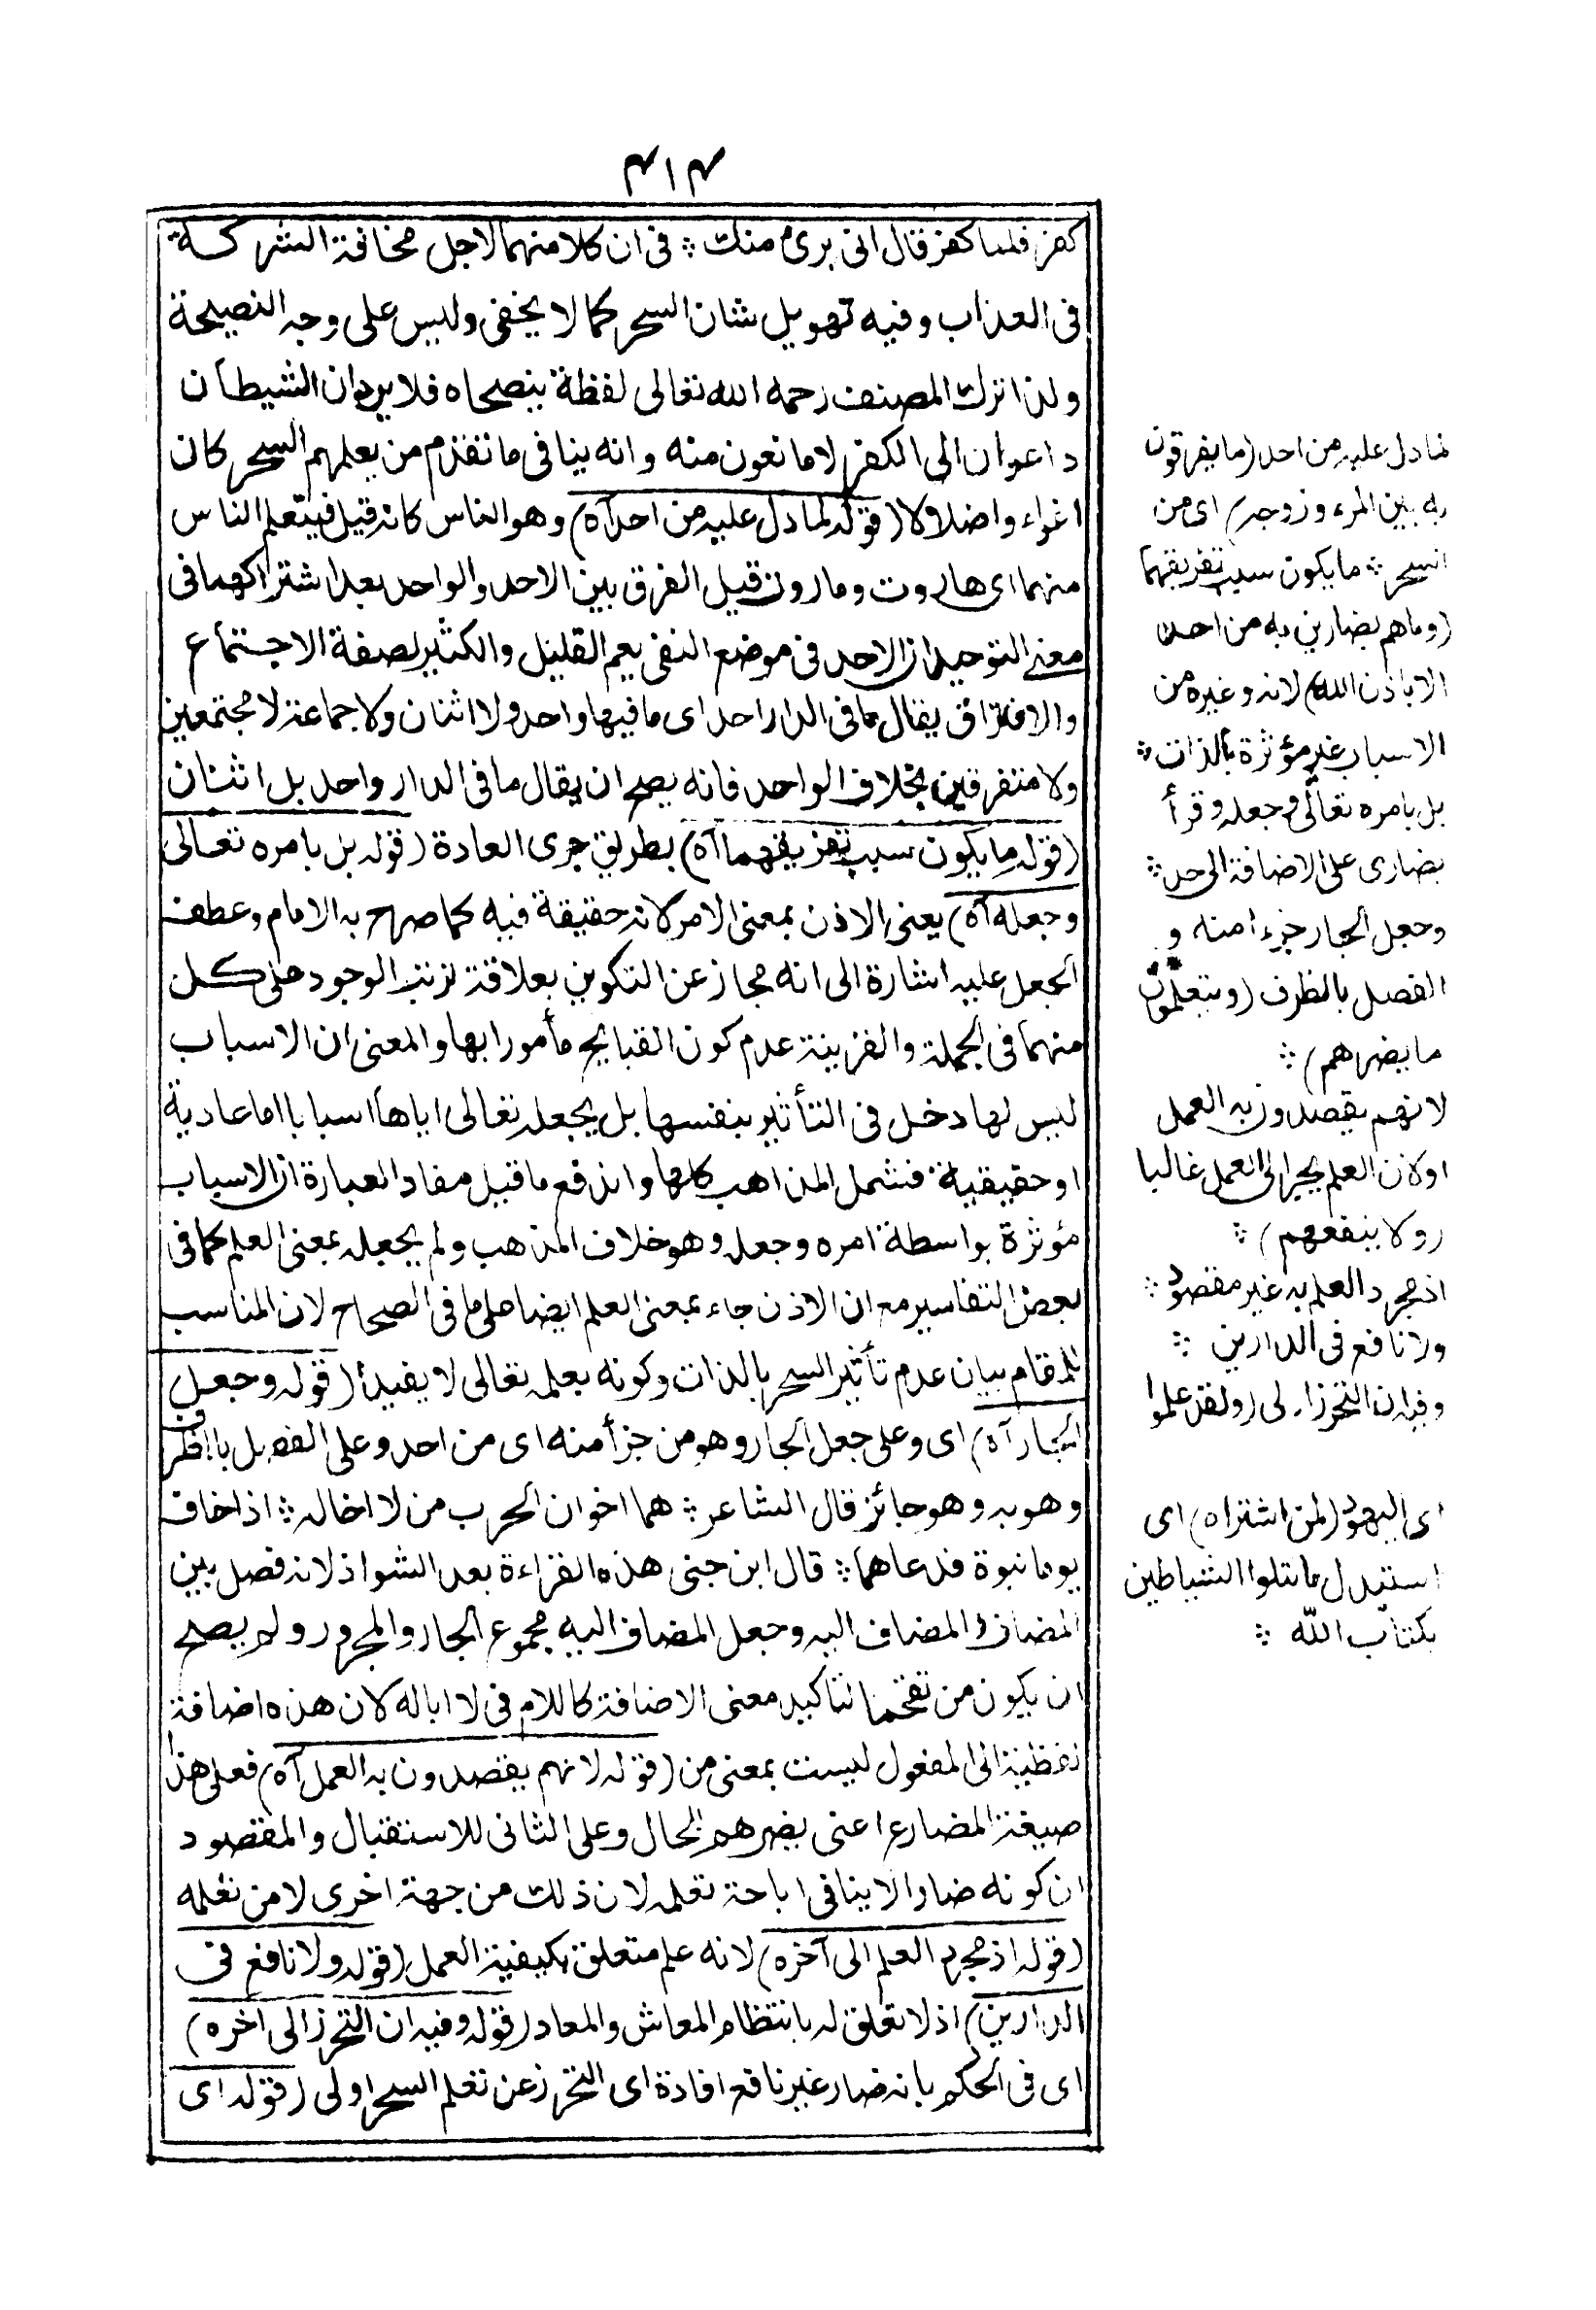 ٤١٤
كفر فلما كفر قال انى برئ منك ؞ فى ان كلا منهما لاجل مخافة الشركة
فى العذاب وفيه تهويل شان السحر كما لا يخفى وليس على وجه النصيحة
ولذا ترك المصنف رحمه الله تعالى لفظة ينصحاه فلا يرد ان الشيطان
داعوان الى الكفر لا مانعون منه وانه ينافى ما تقدم من يعلمهم السحر كان
اغراء واضلالا (قوله لما دل عليه من احد آه) وهو الناس كانه قيل فيتعلم الناس
منهما اى هاروت وماروت قيل الفرق بين الاحد والواحد بعد اشتراكهما فى
معنى التوحيد ان الاحد فى موضع النفى يعم القليل والكثير لصفة الاجتماع
والافتراق يقال ما فى الدار احد اى ما فيها واحد ولا اثنان ولا جماعة لا مجتمعين
ولا متفرقين بخلاف الواحد فانه يصح ان يقال ما فى الدار واحد بل اثنان
(قوله ما يكون سبب تفريقهما آه) بطريق جرى العادة (قوله بل بامره تعالى
وجعله آه) يعنى الاذن بمعنى الامر لانه حقيقة فيه كما صرح به الامام وعطف
الجعل عليه اشارة الى انه مجاز عن التكوين بعلاقة ترتب الوجود على كل
منهما فى الجملة والقرينة عدم كون القبايح مأمورا بها والمعنى ان الاسباب
ليس لها دخل فى التأثير بنفسها بل يجعله تعالى اياها اسبابا اما عادية
او حقيقية فتشمل المذاهب كلها واندفع ما قيل مفاد العبارة ان الاسباب
مؤثرة بواسطة امره وجعله وهو خلاف المذهب ولم يجعله بمعنى العلم كما فى
بعض التفاسير مع ان الاذن جاء بمعنى العلم ايضا على ما فى الصحاح لان المناسب
للمقام بيان عدم تأثير السحر بالذات وكونه بعلمه تعالى لا يفيدأ (قوله وجعل
الجار آه) اى وعلى جعل الجار وهو من جزأ منه اى من احد وعلى الفصل بالظرف
وهو به وهو جائز قال الشاعر ؞ هما اخوان الحرب من لا اخا له ؞ اذا خاف
يوما نبوة فدعاهما ؞ قال ابن جنى هذه القراءة بعد الشواذ لانه فصل بين
المضاف والمضاف اليه وجعل المضاف اليه مجموع الجار والمجرور ولم يصح
ان يكون من تقحما لتاكيد معنى الاضافة كاللام فى لا ابا له لان هذه اضافة
لفظية الى المفعول ليست بمعنى من (قوله لانهم يقصدون به العمل آه) فعلى هذا
صيغة المضارع اعنى يضرهم للحال وعلى الثانى للاستقبال والمقصود
ان كونه ضارا لا ينافى اباحة تعلمه لان ذلك من جهة اخرى لا من تعلمه
(قوله اذ مجرد العلم الى آخره) لانه علم متعلق بكيفية العمل (قوله ولا نافع فى
الدارين) اذ لا تعلق له بانتظام المعاش والمعاد (قوله وفيه ان التحرز الى اخره)
اى فى الحكم بانه ضار غير نافع افادة اى التحرز عن تعلم السحر اولى (قوله اى
لما دل عليه من احد (ما يفرقون
به بين المرء وزوجه) اى من
السحر ؞ ما يكون سبب تفريقهما
(وما هم بضارين به من احد
الا باذن الله) لانه وغيره من
الاسباب غير مؤثرة بالذات ؞
بل بامره تعالى وجعله وقرأ
بضارى على الاضافة الى احد ؞
وجعل الجار جزء ا منه و
الفصل بالظرف (ويتعلمون
ما يضرهم) ؞
لانهم يقصدون به العمل
او لان العلم يجر الى العمل غالبا
(ولا ينفعهم) ؞
اذ مجرد العلم به غير مقصود ؞
ولا نافع فى الدارين ؞
وفيه ان التحرز اولى (ولقد علموا
اى اليهود (لمن اشتراه) اى
استبدل ما تتلوا الشياطين
بكتاب الله ؞